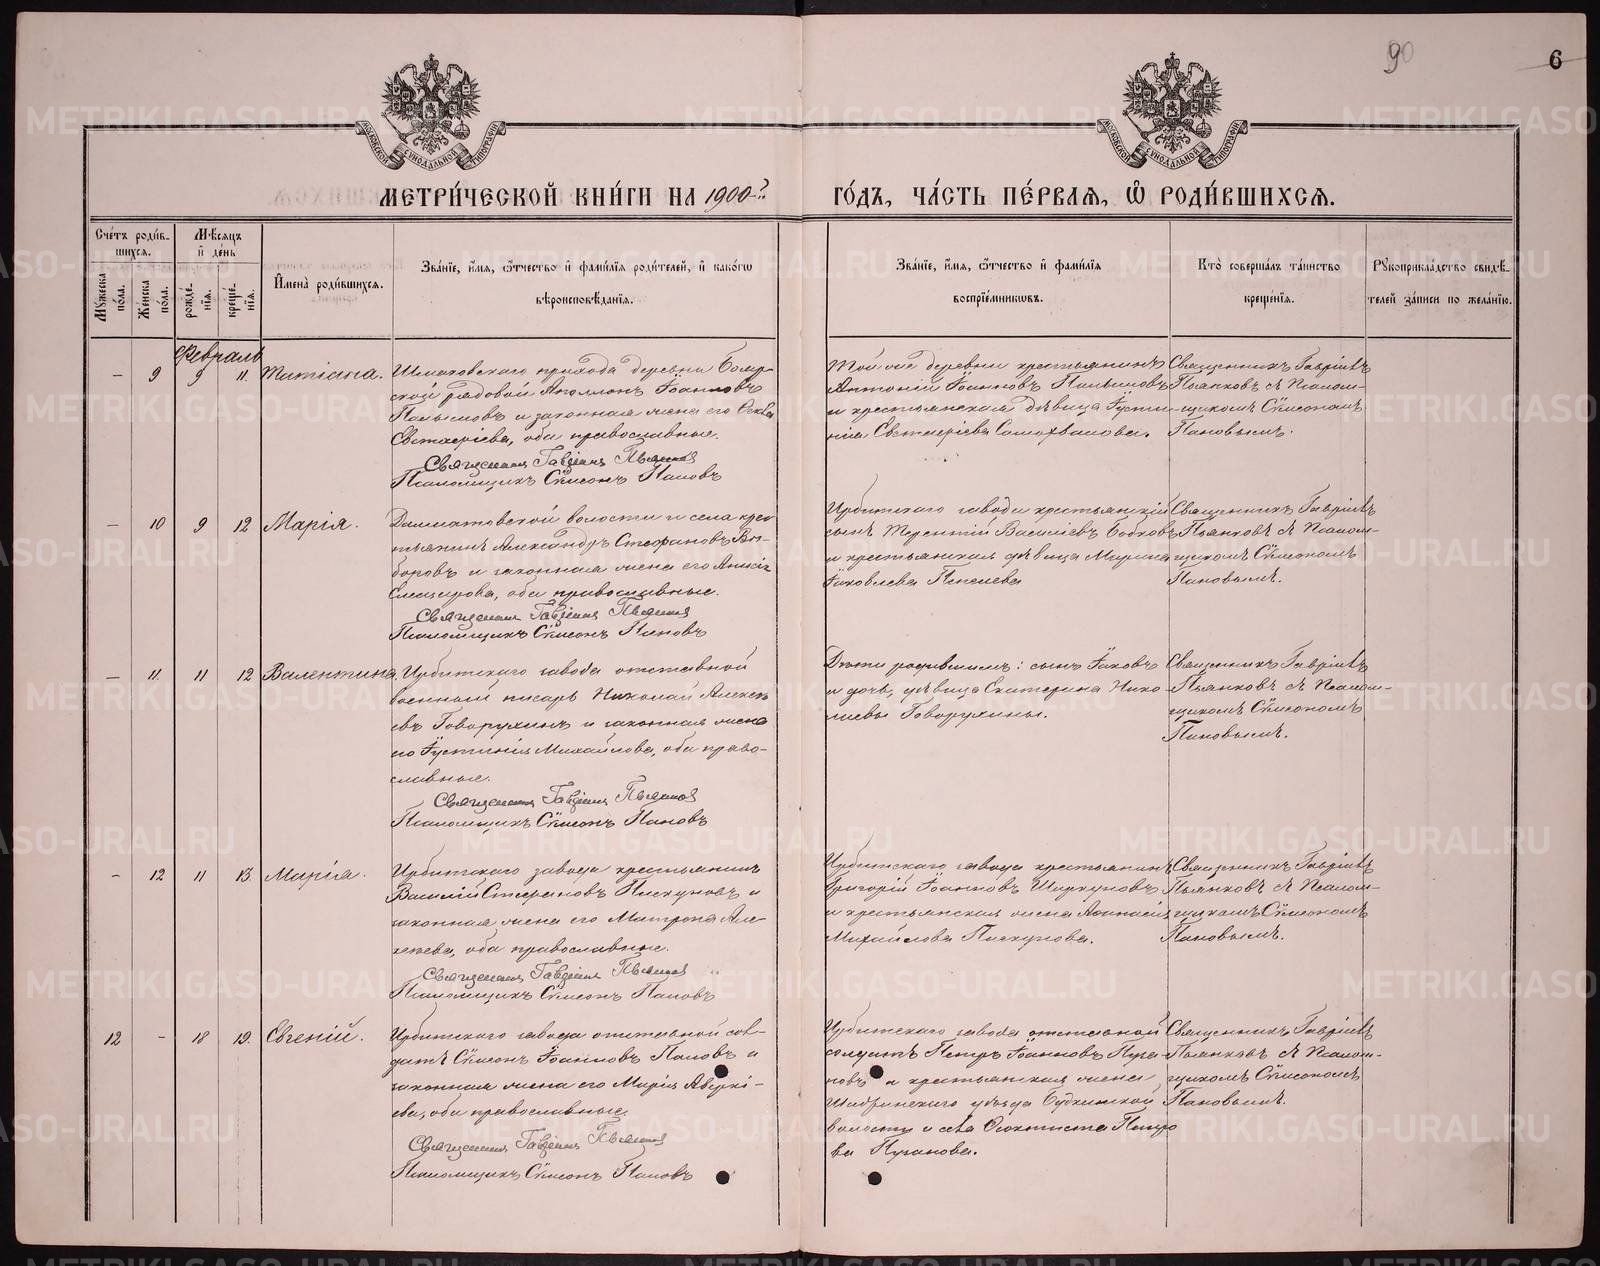 90
6
МЕТРИ́ЧЕСКОЙ КНИ́ГИ НА 1900 г.
ГО́ДЪ, ЧА́СТЬ ПЕ́РВАЯ, Ѽ РОДИ́ВШИХСЯ.
Сче́тъ роди́в-
шихся.
Мꙋжеска по́ла.
Же́нска по́ла.
Мѣ́сяцъ
и҆ де́нь
рожде́-
нїя.
креще́-
нїя.
И҆мена̀ роди́вшихся.
Зва́нїе, и҆́мя, ѻ҆́тчество и҆ фами́лїя роди́телей, и҆ како́гѡ
вѣроисповѣ́данїя.
Зва́нїе, и҆́мя, ѻ҆́тчество и҆ фами́лїя
воспрїе́мникѡвъ.
Кто̀ соверша́лъ та́инство
креще́нїя.
Рꙋкоприкла́дство свидѣ́-
телей за́писи по жела́нїю.
Февраль
– 9 9 11. Татіана.
Шмаковскаго прихода деревни
рядовой Аполлонъ Іоанновъ
и законная жена его
оба православные.
Священникъ Гавріилъ Пьянковъ
Псаломщикъ Сѵмеонъ Пановъ
Той же деревни крестьянинъ
Антоній Іоанновъ
и крестьянская дѣвица Іусти-
нія
Священникъ Гавріилъ
Пьянковъ с Псалом-
щикомъ Сѵмеономъ
Пановымъ.
– 10 9 12 Марія.
Далматовской волости и села крес
тьянинъ Александръ Стефановъ Вы-
боровъ и законная жена его Анисія
оба православные.
Священникъ Гавріилъ Пьянковъ
Псаломщикъ Сѵмеонъ Пановъ
Ирбитскаго завода крестьянскій
сынъ Терентій Василіевъ Бобковъ
и крестьянская дѣвица Марина
Іаковлева Пепелева
Священникъ Гавріилъ
Пьянковъ с Псалом-
щикомъ Сѵмеономъ
Пановымъ.
– 11. 11 12 Валентина
Ирбитскаго завода отставной
военный писарь Николай Алексѣ
евъ Говорухинъ и законная жена
его Іустинія Михайлова, оба право-
славные.
Священникъ Гавріилъ Пьянковъ
Псаломщикъ Сѵмеонъ Пановъ
Дѣти родившихъ: сынъ Іаковъ
и дочь, дѣвица Екатерина Нико
лаевы Говорухины.
Священникъ Гавріилъ
Пьянковъ с Псалом-
щикомъ Сѵмеономъ
Пановымъ.
– 12 11 13 Марія.
Ирбитскаго завода крестьянинъ
Василій Стефановъ Пискуновъ и
законная жена его Матрона Але-
ксѣева, оба православные.
Священникъ Гавріилъ Пьянковъ
Псаломщикъ Сѵмеонъ Пановъ
Ирбитскаго завода крестьянинъ
Григорій Іоанновъ Шаркуновъ
и крестьянская жена Аѳанасія
Михайлова Пискунова.
Священникъ Гавріилъ
Пьянковъ с Псалом-
щикомъ Сѵмеономъ
Пановымъ.
12 – 18 19. Евгеній.
Ирбитскаго завода отставной сол-
датъ Сѵмеонъ Іоанновъ Пановъ и
законная жена его Марія Аверкі-
ева, оба православные.
Священникъ Гавріилъ Пьянковъ
Псаломщикъ Сѵмеонъ Пановъ
Ирбитскаго завода отставной
солдатъ Петръ Іоанновъ Пуга-
новъ и крестьянская жена
Шадринскаго уѣзда
волости и села Ѳеоктиста Петро
ва Пуганова.
Священникъ Гавріилъ
Пьянковъ с Псалом-
щикомъ Сѵмеономъ
Пановымъ.
METRIKI.GASO-URAL.RU